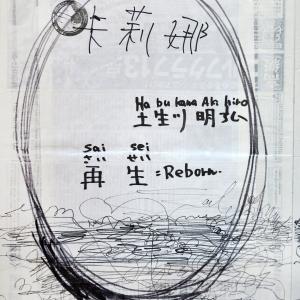 卡莉娜
Ha bu kawa Aki hiro
土生川 明弘
sai sei
さい せい
再 生 = Reborn.